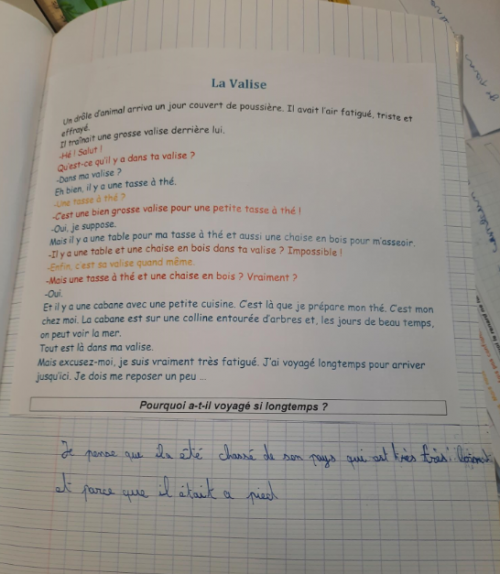 La Valise
Un drôle d'animal arriva un jour couvert de poussière. Il avait l'air fatigué, triste et
effrayé.
Il traînait une grosse valise derrière lui.
-Hé ! Salut !
Qu'est-ce qu'il y a dans ta valise ?
-Dans ma valise ?
Eh bien, il y a une tasse à thé.
-Une tasse à thé ?
-C'est une bien grosse valise pour une petite tasse à thé !
-Oui, je suppose.
Mais il y a une table pour ma tasse à thé et aussi une chaise en bois pour m'asseoir.
-Il y a une table et une chaise en bois dans ta valise ? Impossible !
-Enfin, c'est sa valise quand même.
-Mais une tasse à thé et une chaise en bois ? Vraiment ?
-Oui.
Et il y a une cabane avec une petite cuisine. C'est là que je prépare mon thé. C'est mon
chez moi. La cabane est sur une colline entourée d'arbres et, les jours de beau temps,
on peut voir la mer.
Tout est là dans ma valise.
Mais excusez-moi, je suis vraiment très fatigué. J'ai voyagé longtemps pour arriver
jusqu'ici. Je dois me reposer un peu ...
Pourquoi a-t-il voyagé si longtemps ?
Je pense que il a été chassé de son pays qui est très très
et parce que il était a pied